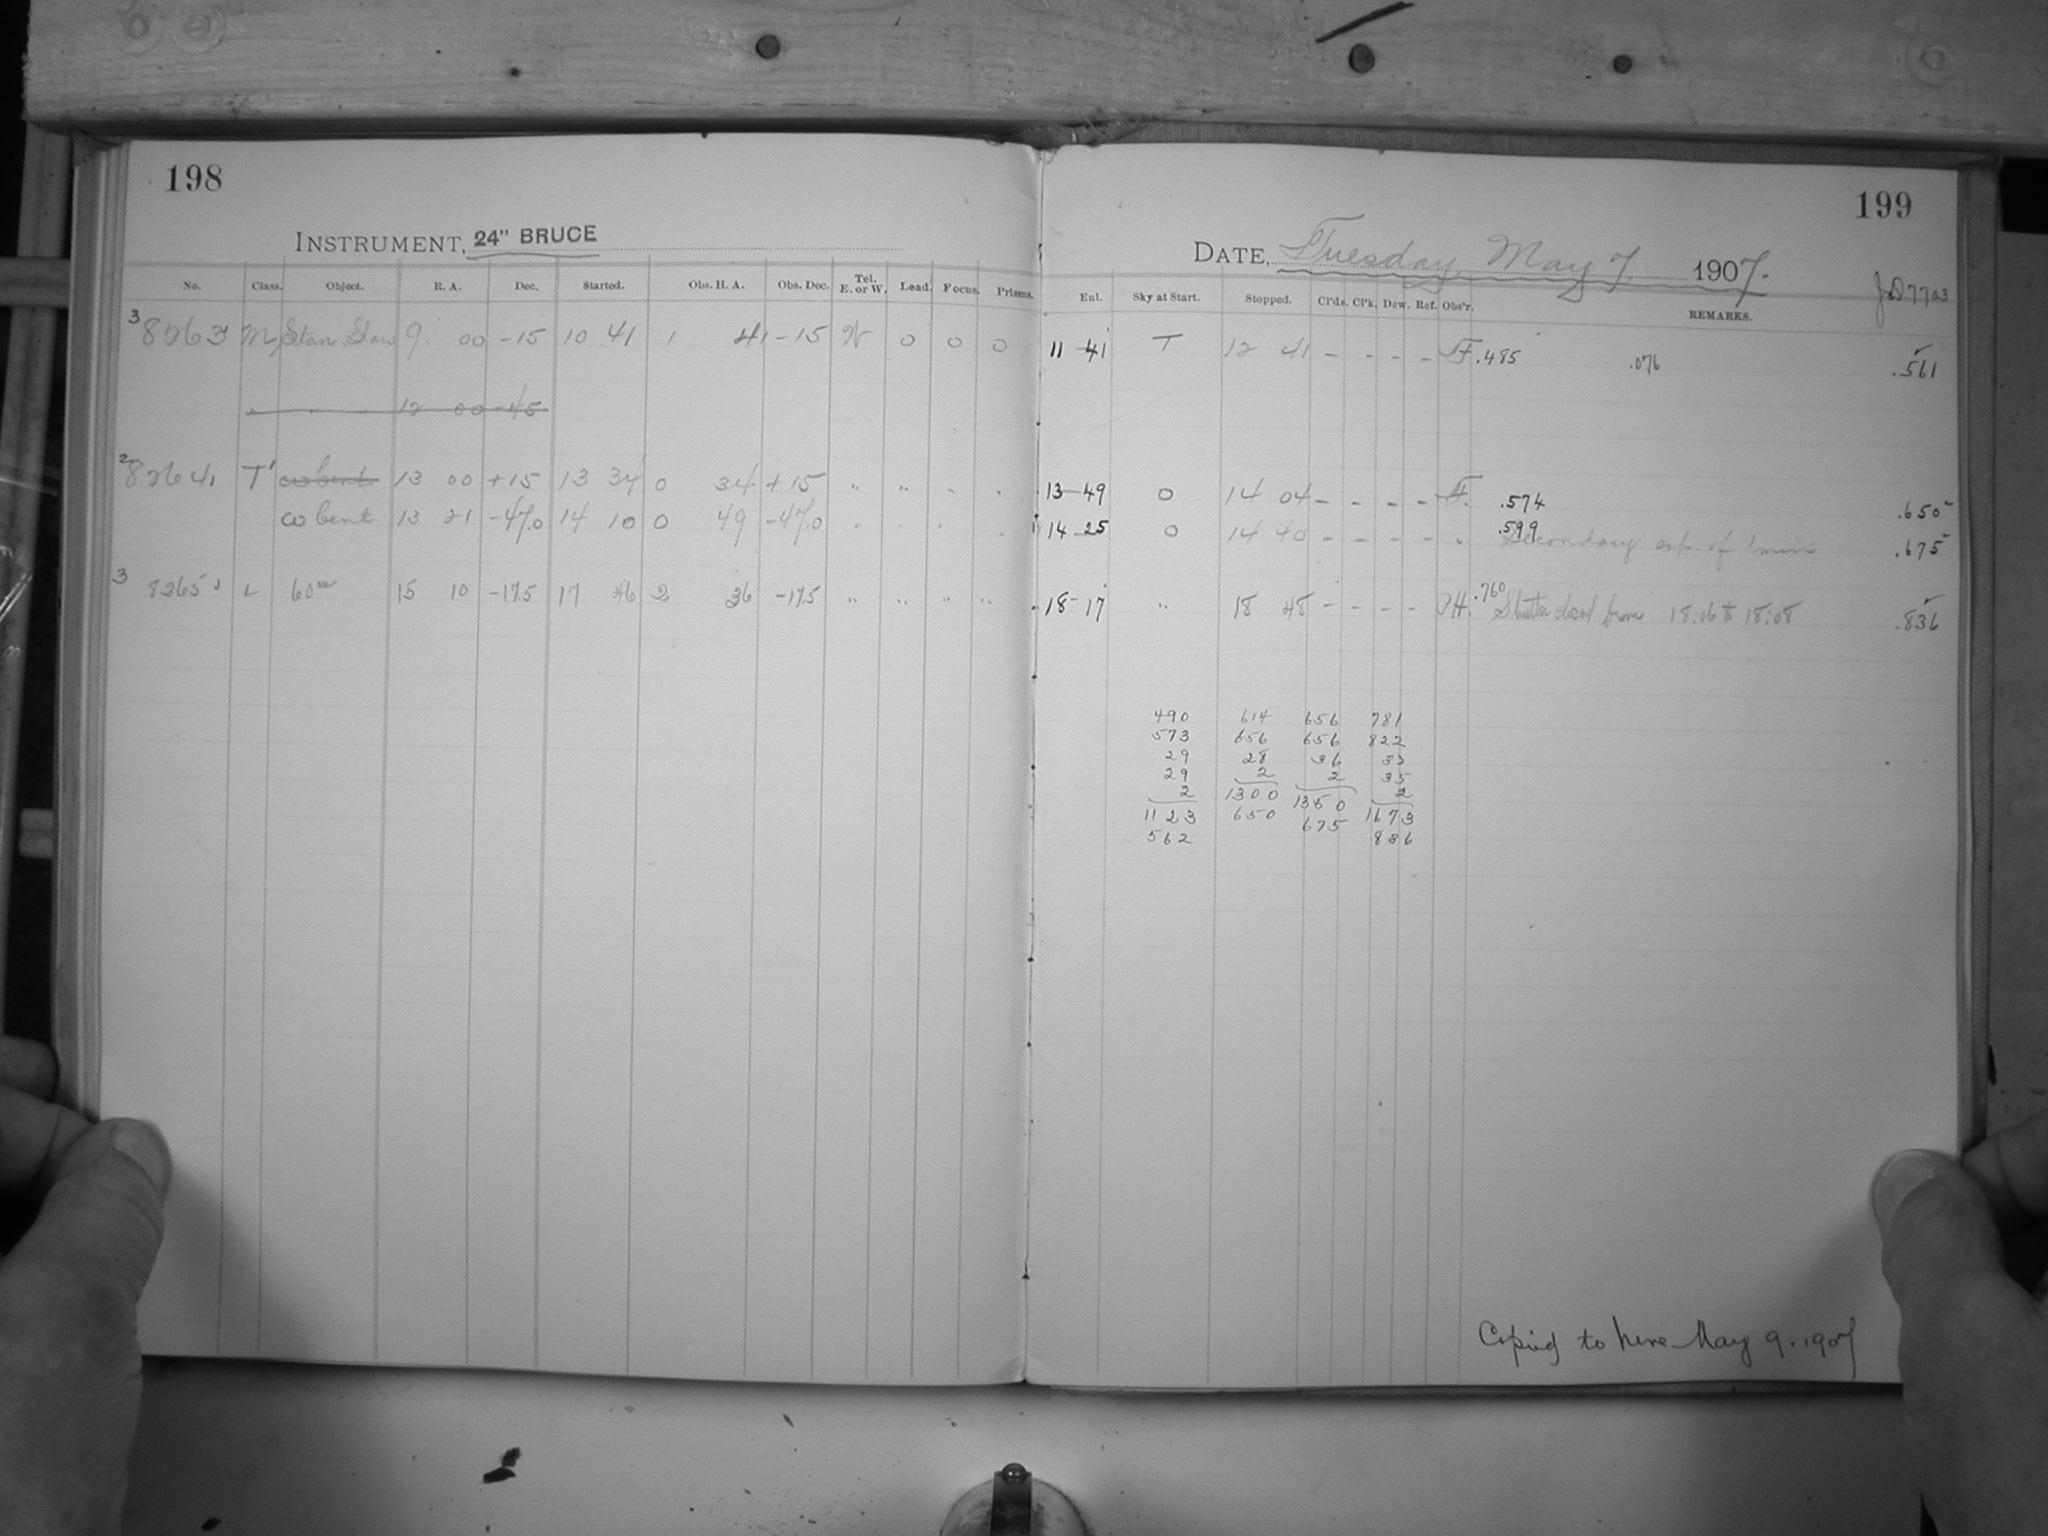 198
199
INSTRUMENT, 24" BRUCE
DATE, Tuesday May 7. 1907.
No. Class. Object. R. A. Dec. Started. Obs. H. A. Obs. Dec. Tel. E. or W. Lead. Focus. Prisms. Enl. Sky at Start. Stopped. Cl'ds. Cl'k. Dew. Ref. Obs'r. REMARKS.
9 00 -15 10 41 1 41 -15 W 0 0 0 11-41 T 12 41 - - - - F .485 .076 .561
" " - 12 00 -45
T' ω cent 13 00 +15 13 34 0 34 +15 " " - . 13-49 0 14 04 - - - - F. .574 .650
ω cent. 13 21 -47.0 14 10 0 49 -47.0 14-25 0 14 40 - - - - " .599 Secondary exp. of 1 min .675
3 8265 L 60m 15 10 -17.5 17 46 2 36 -17.5 " " " " 18-17 " 18 48 - - - - .760 Shutter closed from 18:06 to 18:08 .836
490 614 656 781
573 656 656 822
29 28 36 33
29 2 2 35
2 1300 1350 2
1123 650 675 1673
562 836
Copied to here May 9. 1907